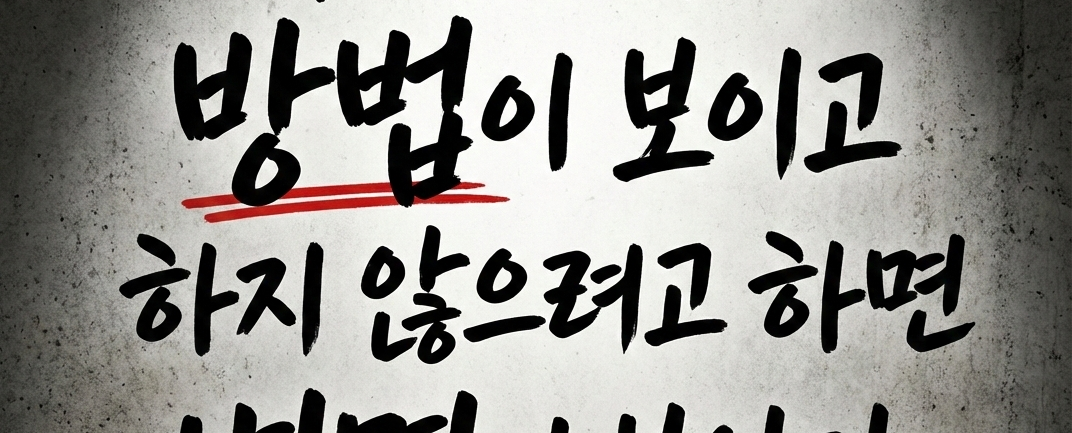 방법이 보이고
하지 않으려고 하면